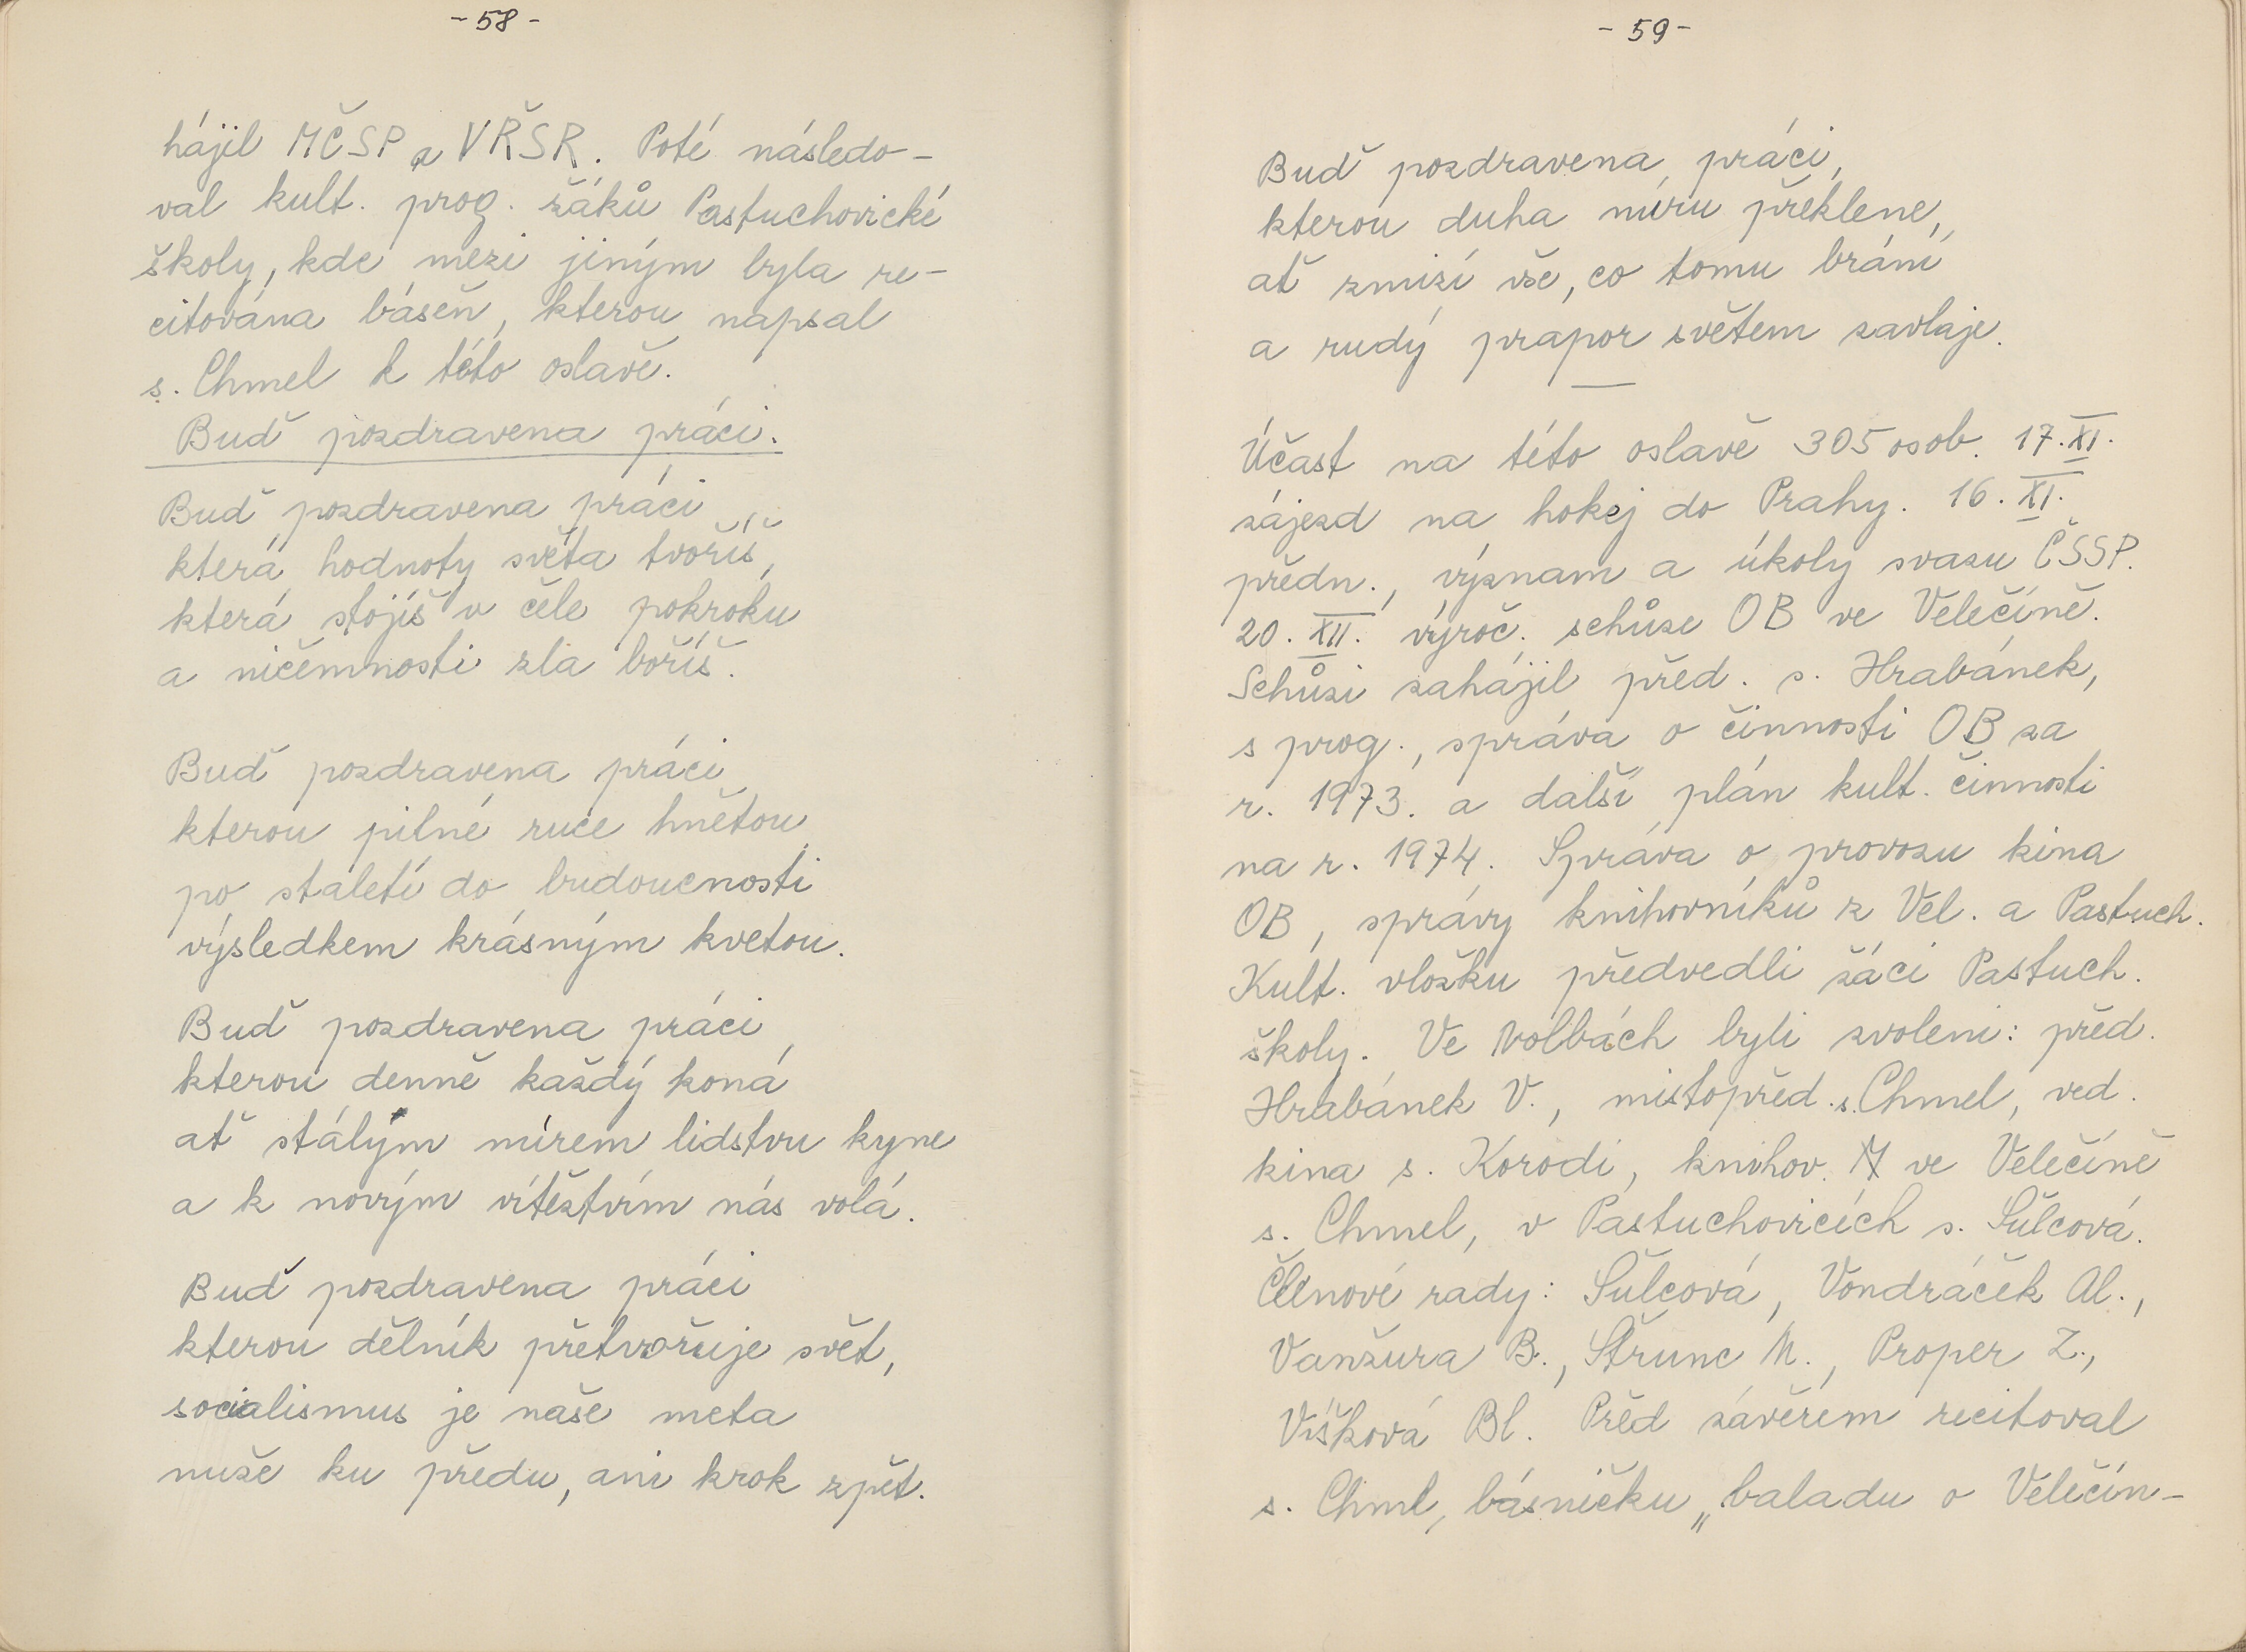 - 58 -
hájil MČSP a VŘSR. Poté následo-
val kult. prog. žáků Pastuchovické
školy, kde mezi jiným byla re-
citována báseň, kterou napsal
s. Chmel k této oslavě.
Buď pozdravena práci.
Buď pozdravena práci
která hodnoty světa tvoříš,
která stojíš v čele pokroku
a ničemnosti zla boříš.
Buď pozdravena práci
kterou pilné ruce hnětou
po staletí do budoucnosti
výsledkem krásným kvetou.
Buď pozdravena práci,
kterou denně každý koná
ať stálým mírem lidstvu kyne
a k novým vítěztvím nás volá.
Buď pozdravena práci
kterou dělník přetvořuje svět,
socialismus je naše meta
nuže ku předu, ani krok zpět.
- 59 -
Buď pozdravena, práci,
kterou duha míru překlene,
ať zmizí vše, co tomu brání
a rudý prapor světem zavlaje.
Účast na této oslavě 305 osob. 17. XI.
zájezd na hokej do Prahy. 16. XI.
předn., význam a úkoly svazu ČSSP.
20. XII. výroč. schůze OB ve Velečíně.
Schůzi zahájil před. s. Hrabánek,
s prog., správa o činnosti OB za
r. 1973. a další plán kult. činnosti
na r. 1974. Správa o provozu kina
OB, správy knihovníků z Vel. a Pastuch.
Kult. vložku předvedli žáci Pastuch.
školy. Ve volbách byli zvoleni: před.
Hrabánek V., mistopřed. s. Chmel, ved.
kina s. Korodi, knihov. ve Velečíně
s. Chmel, v Pastuchovicích s. Šulcová.
Členové rady: Šulcová, Vondráček Al.,
Vanžura B., Štrunc M., Proper Z.,
Víšková Bl. Před závěrem recitoval
s. Chml, básničku „baladu o Velečín-